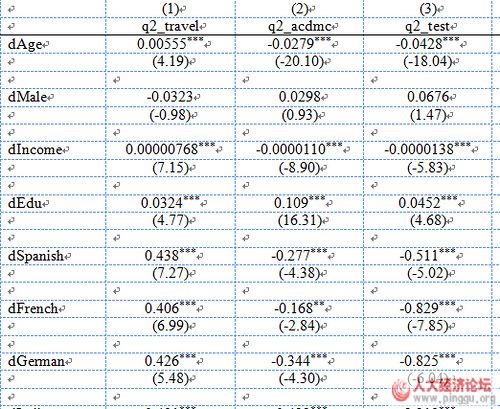 (1) (2) (3)
q2_travel q2_acdmc q2_test
dAge 0.00555*** -0.0279*** -0.0428***
(4.19) (-20.10) (-18.04)
dMale -0.0323 0.0298 0.0676
(-0.98) (0.93) (1.47)
dIncome 0.00000768*** -0.0000110*** -0.0000138***
(7.15) (-8.90) (-5.83)
dEdu 0.0324*** 0.109*** 0.0452***
(4.77) (16.31) (4.68)
dSpanish 0.438*** -0.277*** -0.511***
(7.27) (-4.38) (-5.02)
dFrench 0.406*** -0.168** -0.829***
(6.99) (-2.84) (-7.85)
dGerman 0.426*** -0.344*** -0.825***
(5.48) (-4.30) (-6.04)
人大经济论坛
www.pinggu.org